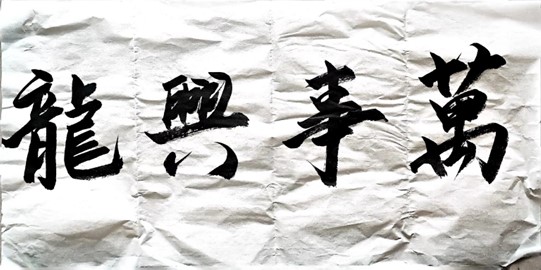 萬事興龍